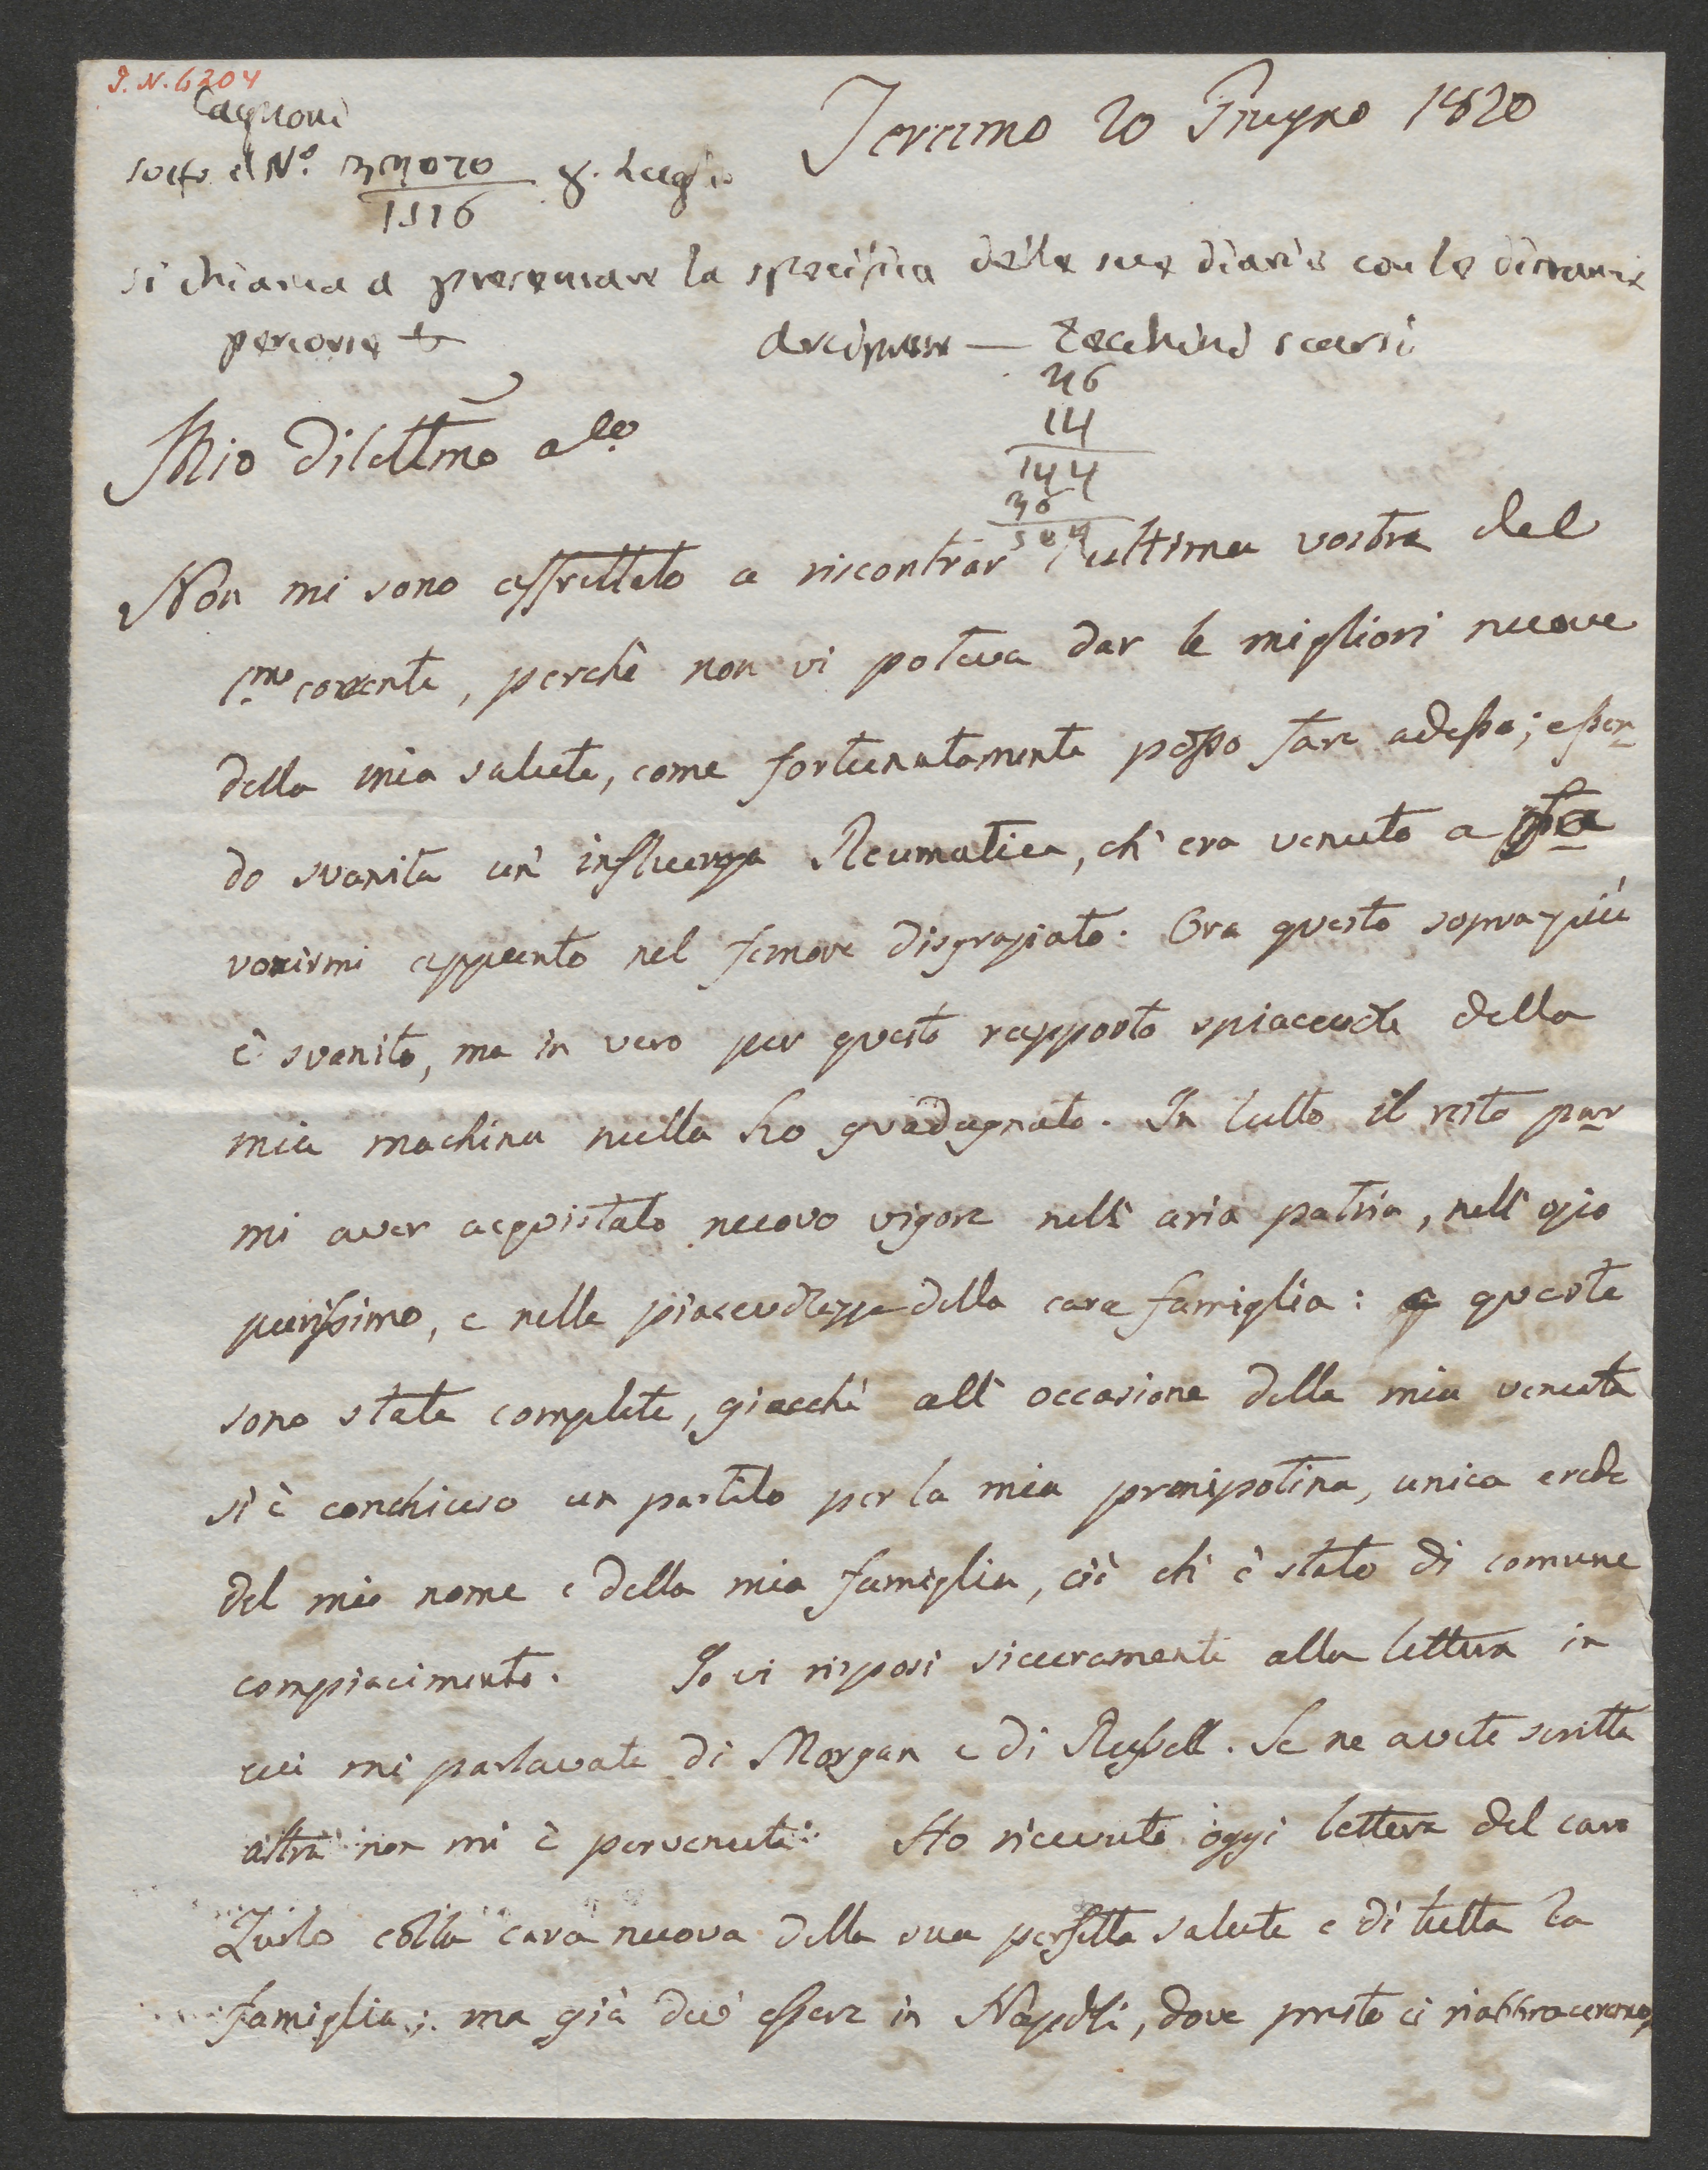 I. N. 6204
Cagnoni
sotto il N.º 33020 8. Luglio
1516
Teramo 20 Giugno 1820
si chiama a presentare la specifica delle sue diarie con le distanze
percorse +
zecchini scarsi
36
14
144
36
504
Mio Dilettmo a.co
Non mi sono affrettato a riscontrar l'ultima vostra del
1.mo corrente, perchè non vi poteva dar le migliori nuove
della mia salute, come fortunatamente posso fare adesso; essen-
do svanita un' influenza Reumatica, ch' era venuto a
appunto nel femore disgraziato. Ora questo soprapiù
è svanito, ma in vero per questo rapporto spiacevole della
mia machina nulla ho guadagnato. In tutto il resto par-
mi aver acquistato nuovo vigore nell' aria patria, nell' ozio
purissimo, e nelle piacevolezze della cara famiglia: queste
sono state complete, giacchè all' occasione della mia venuta
si è conchiuso un partito per la mia pronipotina, unica erede
del mio nome e della mia famiglia, ciò ch' è stato di comune
compiacimento. Io vi risposi sicuramente alla lettera in
cui mi parlavate di Morgan e di Russell. Se ne avete scritta
altra non mi è pervenuta. Ho ricevuto oggi lettera del caro
Zurlo colla cara nuova della sua perfetta salute e di tutta la
famiglia; ma già dev' essere in Napoli, dove presto ci riabbracceremo,